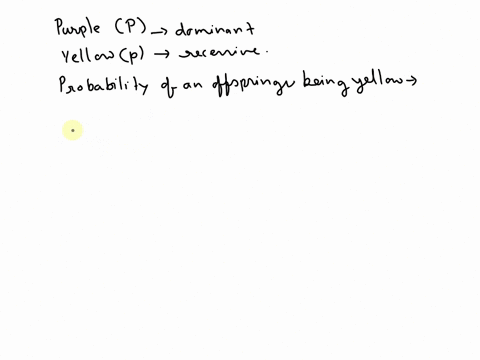 Purple (P) → dominant
Yellow (p) → recessive.
Probability of an offspring being yellow →